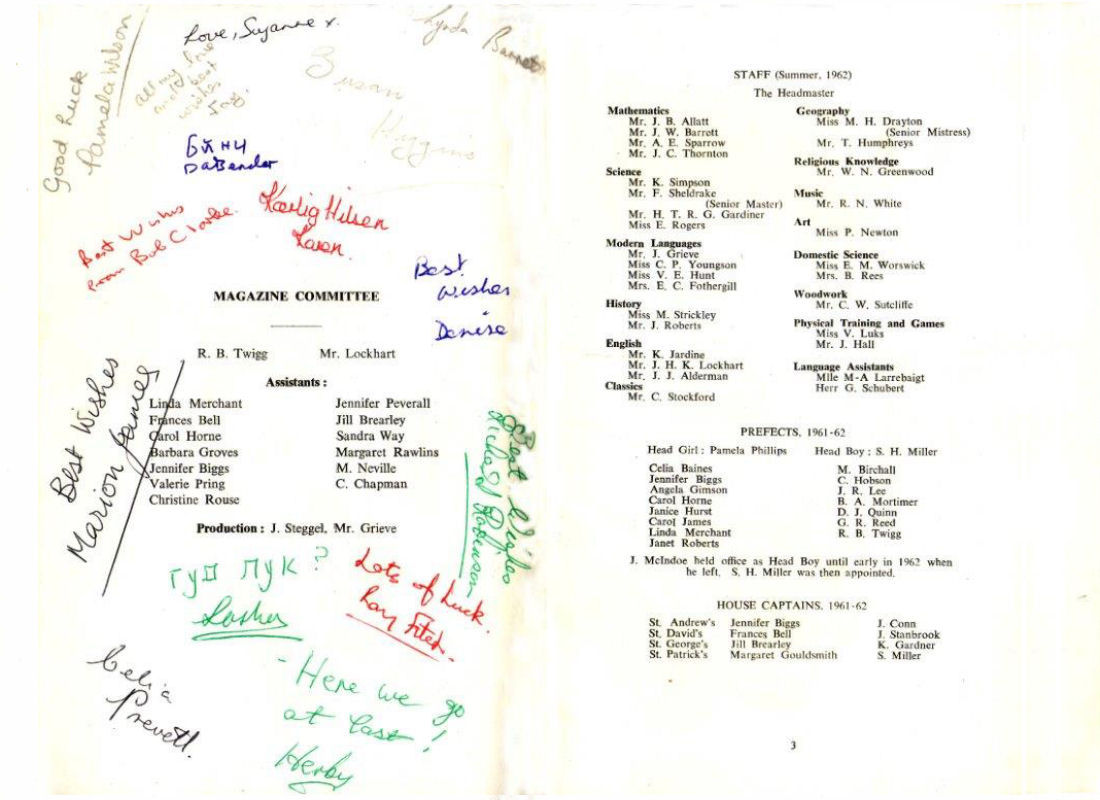 Love, Suzanne x.
Lynda Barnett
Good Luck
Pamela Wilson
all my love
and best
wishes
Susan
Higgins
Best Wishes
From Bob Clarke.
Kærlig Hilsen
Best
Wishes
Denise
MAGAZINE COMMITTEE
R. B. Twigg Mr. Lockhart
Assistants :
Linda Merchant Jennifer Peverall
Frances Bell Jill Brearley
Carol Horne Sandra Way
Barbara Groves Margaret Rawlins
Jennifer Biggs M. Neville
Valerie Pring C. Chapman
Christine Rouse
Production : J. Steggel, Mr. Grieve
Best Wishes
Marion James
Best Wishes
Richard Robinson
гуд лук ?
Lots of Luck.
Celia
Prevett.
- Here we go
at last !
Herby
STAFF (Summer, 1962)
The Headmaster
Mathematics
Mr. J. B. Allatt
Mr. J. W. Barrett
Mr. A. E. Sparrow
Mr. J. C. Thornton
Science
Mr. K. Simpson
Mr. F. Sheldrake
(Senior Master)
Mr. H. T. R. G. Gardiner
Miss E. Rogers
Modern Languages
Mr. J. Grieve
Miss C. P. Youngson
Miss V. E. Hunt
Mrs. E. C. Fothergill
History
Miss M. Strickley
Mr. J. Roberts
English
Mr. K. Jardine
Mr. J. H. K. Lockhart
Mr. J. J. Alderman
Classics
Mr. C. Stockford
Geography
Miss M. H. Drayton
(Senior Mistress)
Mr. T. Humphreys
Religious Knowledge
Mr. W. N. Greenwood
Music
Mr. R. N. White
Art
Miss P. Newton
Domestic Science
Miss E. M. Worswick
Mrs. B. Rees
Woodwork
Mr. C. W. Sutcliffe
Physical Training and Games
Miss V. Luks
Mr. J. Hall
Language Assistants
Mlle M-A Larrebaigt
Herr G. Schubert
PREFECTS, 1961-62
Head Girl : Pamela Phillips Head Boy : S. H. Miller
Celia Baines M. Birchall
Jennifer Biggs C. Hobson
Angela Gimson J. R. Lee
Carol Horne B. A. Mortimer
Janice Hurst D. J. Quinn
Carol James G. R. Reed
Linda Merchant R. B. Twigg
Janet Roberts
J. McIndoe held office as Head Boy until early in 1962 when
he left, S. H. Miller was then appointed.
HOUSE CAPTAINS, 1961-62
St. Andrew's Jennifer Biggs J. Conn
St. David's Frances Bell J. Stanbrook
St. George's Jill Brearley K. Gardner
St. Patrick's Margaret Gouldsmith S. Miller
3